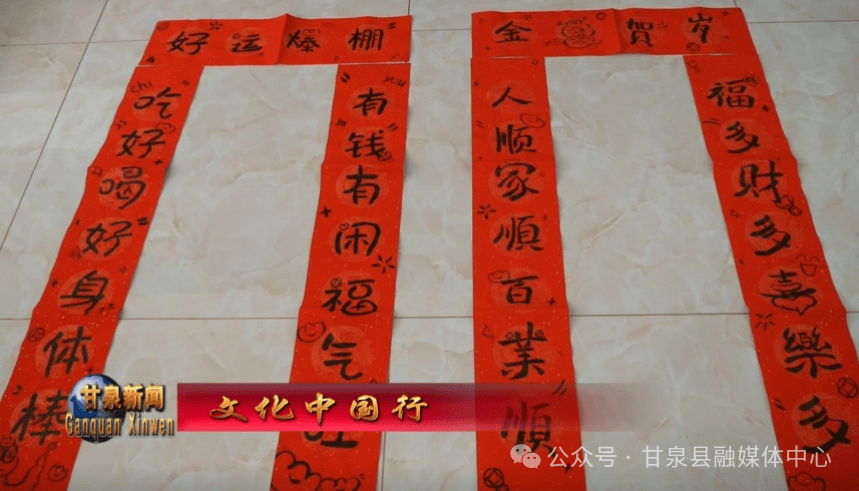 好运爆棚
chi
吃好喝好身体棒
you
有钱有闲福气旺
金 賀岁
人顺家順百業順
福多财多喜樂多
甘泉新闻
Ganquan Xinwen
文化中国行
公众号 · 甘泉县融媒体中心